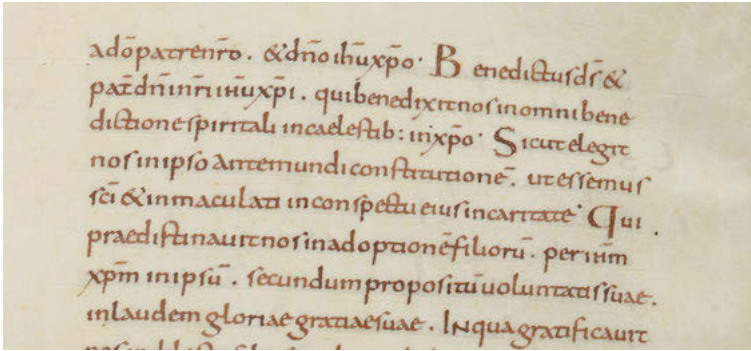 adō patre nr̄o . & dn̄o ihū xp̄o · Benedictus ds̄ &
pat̄ dn̄i nr̄i ihū xp̄i . qui benedixit nos in omni bene
dictione spiritali in caelestib: in xp̄o · Sicut elegit
nos in ipso ante mundi constitutionē . ut essemus
sc̄i & inmaculati in conspectu eius in caritate · Qui .
praedistinauit nos in adoptionē filiorū . per ih̄m
xp̄m in ipsū . secundum propositū uoluntatis suae .
in laudem gloriae gratiae suae . In qua gratificauit